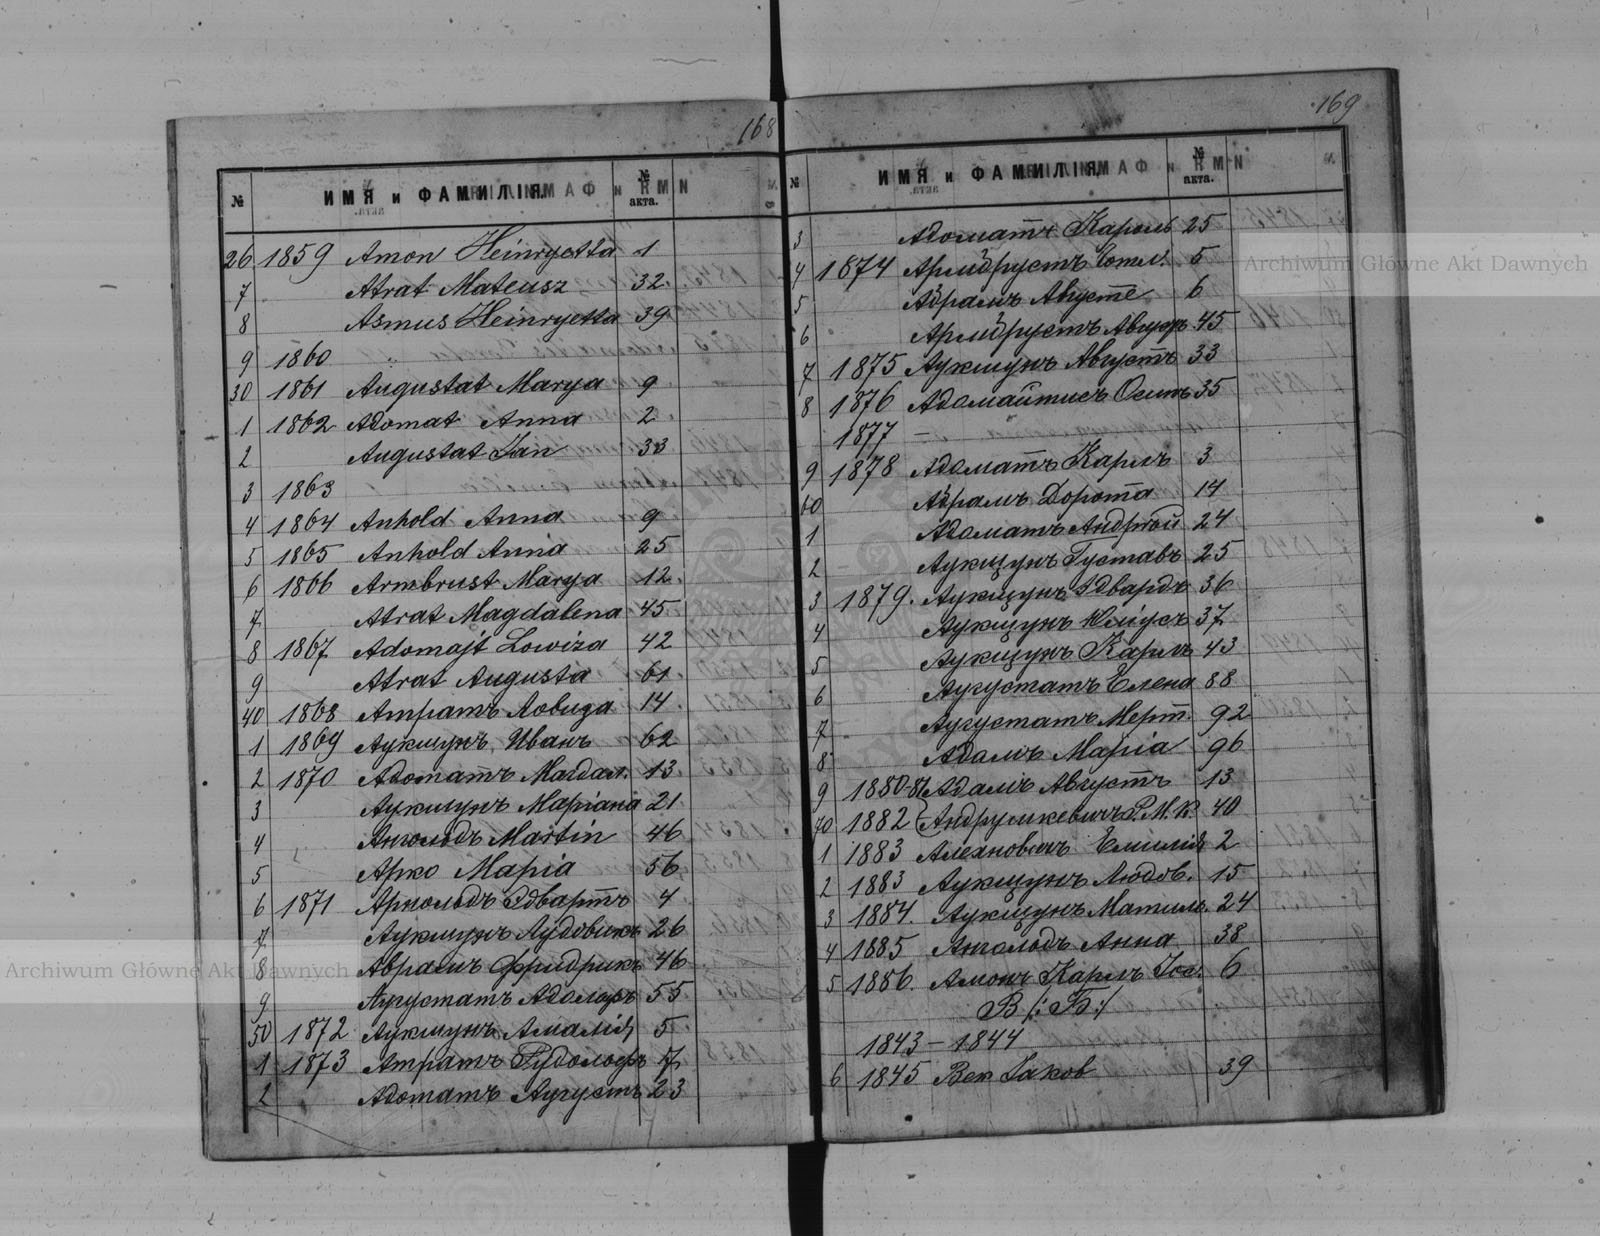 168
№ ИМЯ и ФАМИЛІЯ № акта.
26 1859 Amon Heinryetta 1
7 Atrat Mateusz 32.
8 Asmus Heinryetta 39
9 1860
30 1861 Augustat Marya 9
1 1862 Adomat Anna 2
2 Augustat Jan 33
3 1863
4 1864 Anhold Anna 9
5 1865 Anhold Anna 25
6 1866 Armbrust Marya 12.
7 Atrat Magdalena 45
8 1867 Adomajt Lowiza 42
9 Atrat Augusta 61
40 1868 Атратъ Ловиза 14
1 1869 Аукшунъ Иванъ 62
2 1870 Адоматъ Магдал. 13
3 Аукшунъ Маріана 21
4 Ангольдъ Martin 46
5 Арко Марія 56
6 1871 Арнольдъ Эдвартъ 4
7 Аукшунъ Лудовикъ 26
8 Абрамъ Фридрикъ 46
9 Аугустатъ Адольфъ 55
50 1872 Аукшунъ Амалія 5
1 1873 Атратъ Рудольфъ 7
2 Адоматъ Аугустъ 23
169
№ ИМЯ и ФАМИЛІЯ № акта.
3 Адоматъ Кароль 25
4 1874 Армбрустъ Готл. 5
5 Абрамъ Августе 6
6 Армбрустъ 45
7 1875 Аукшунъ Августъ 33
8 1876 Адомайтисъ Осипъ 35
1877 —
9 1878 Адоматъ Карлъ 3
60 Абрамъ Дорота 14
1 Адоматъ Андрей 24
2 Аукщунъ Густавъ 25
3 1879. Аукщунъ Эдвардъ 36
4 Аукщунъ Юліусъ 37
5 Аукщунъ Карлъ 43
6 Аугустатъ Елена 88
7 Аугустатъ Мерт. 92
8 Адамъ Марія 96
9 1880-81 Адамъ Августъ 13
70 1882 Андрушкевичъ Р. М. К. 40
1 1883 Алехновичъ Емилія 2
2 1883 Аукщунъ Людов. 15
3 1884. Аукщунъ Матиль. 24
4 1885 Анголодъ Анна 38
5 1886. Амонъ Карлъ Іос. 6
B /: Б :/
1843 – 1844
6 1845 Bek Jakob 39
Archiwum Główne Akt Dawnych
Archiwum Główne Akt Dawnych